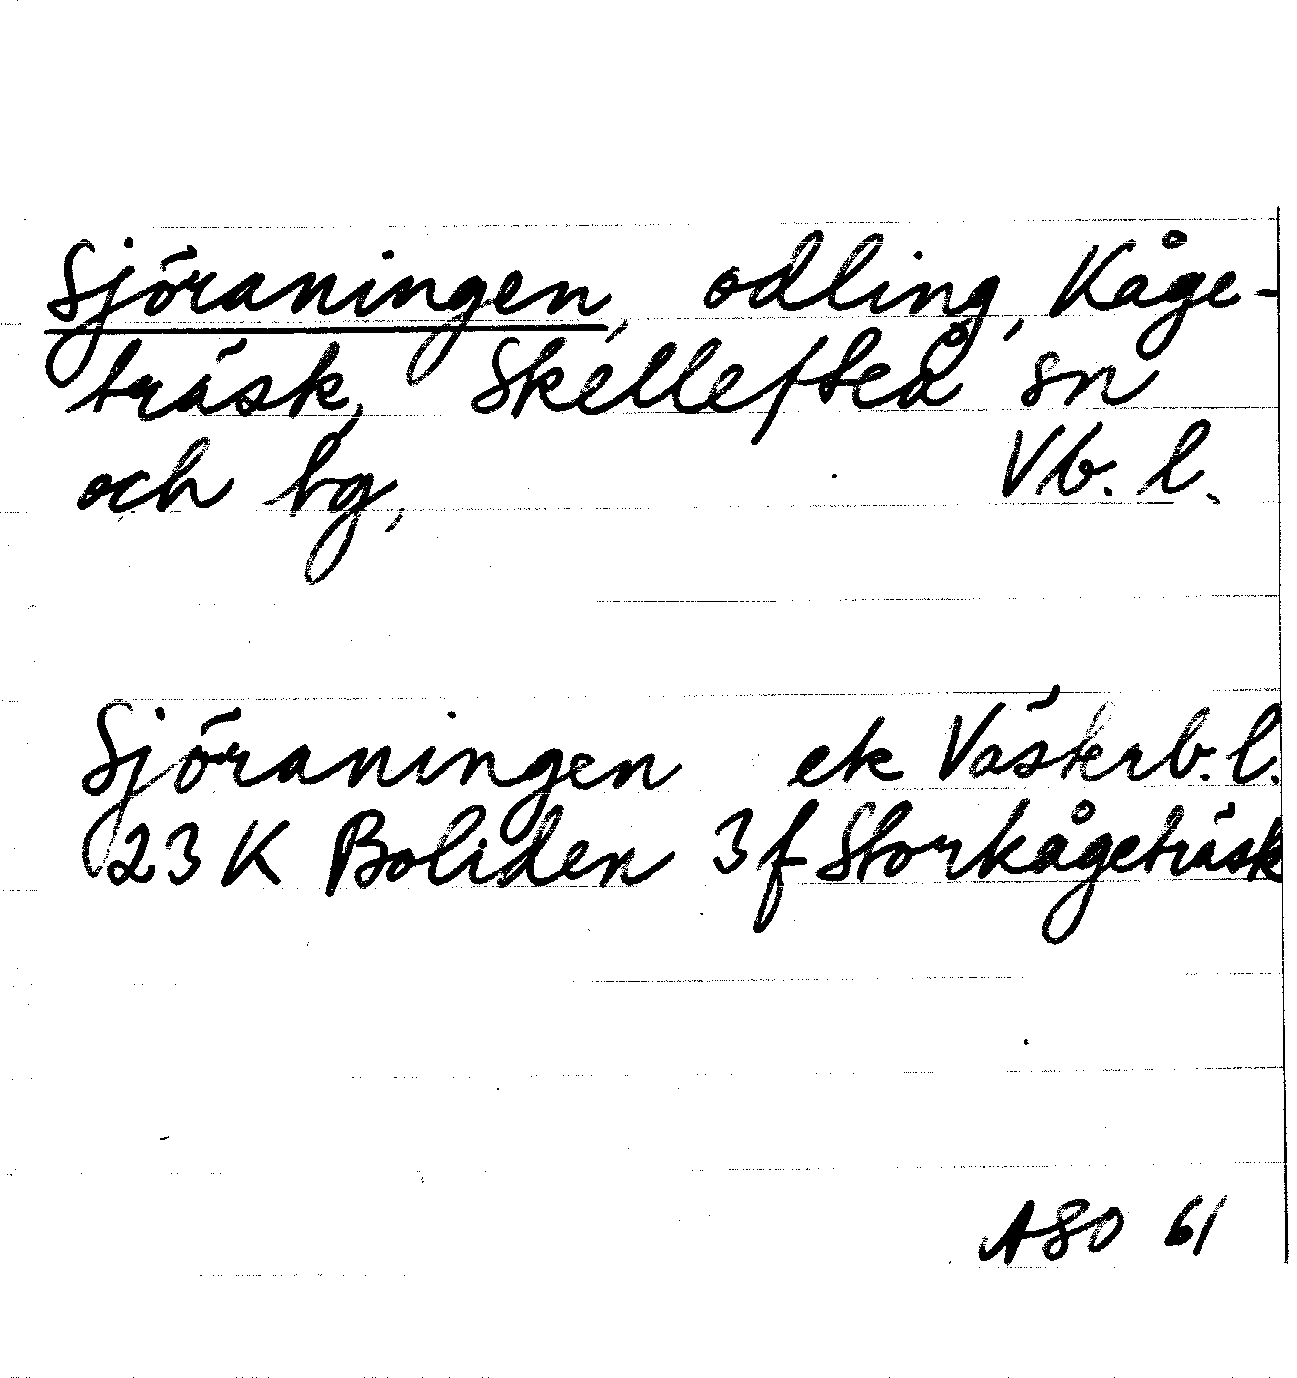 Sjöraningen, odling, Kåge-
träsk, Skellefteå sn
och hg, Vb. l.
Sjöraningen ek Västerb. l.
23 K Boliden 3 f Storkågeträsk
ASO 61